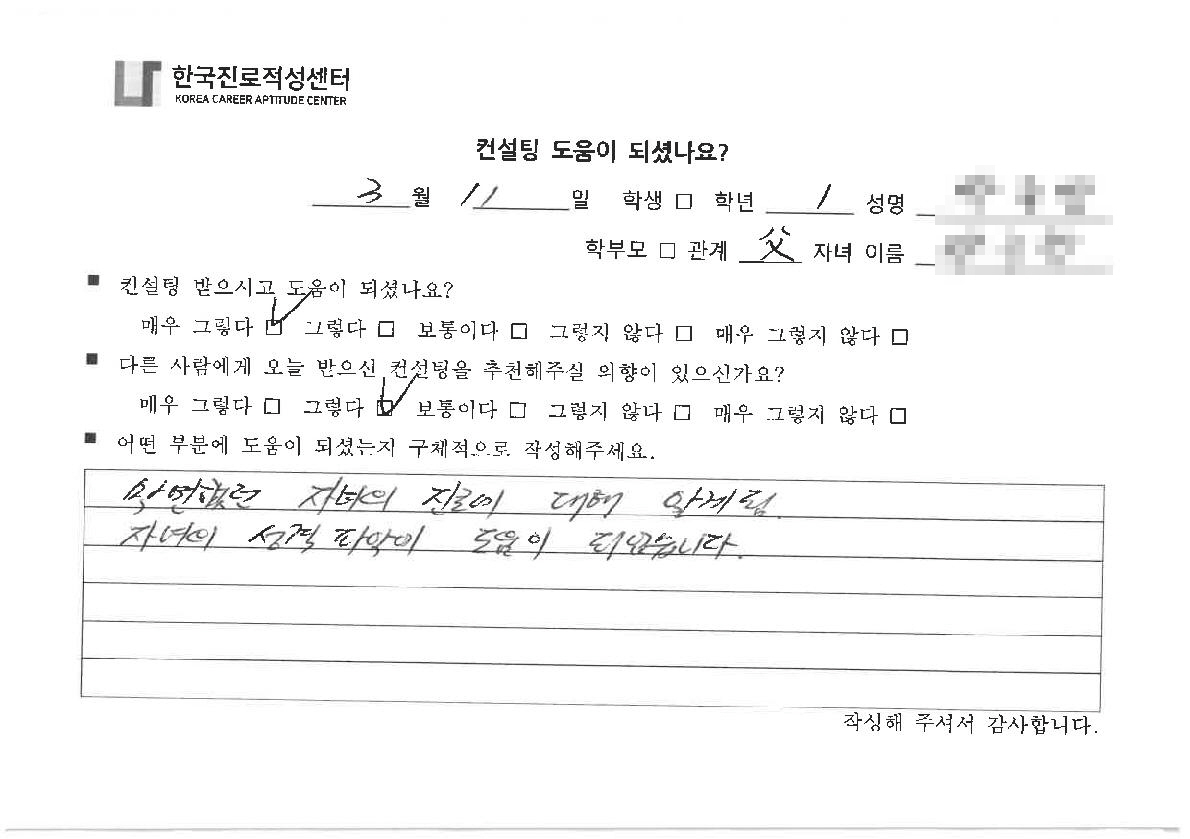 한국진로적성센터
KOREA CAREER APTITUDE CENTER
컨설팅 도움이 되셨나요?
3 월 11 일 학생 □ 학년 1 성명
학부모 □ 관계 父 자녀 이름
■ 컨설팅 받으시고 도움이 되셨나요?
매우 그렇다 ☑ 그렇다 □ 보통이다 □ 그렇지 않다 □ 매우 그렇지 않다 □
■ 다른 사람에게 오늘 받으신 컨설팅을 추천해주실 의향이 있으신가요?
매우 그렇다 □ 그렇다 ☑ 보통이다 □ 그렇지 않다 □ 매우 그렇지 않다 □
■ 어떤 부분에 도움이 되셨는지 구체적으로 작성해주세요.
막연했던 자녀의 진로에 대해 알게됨.
자녀의 성격 파악이 도움이 되었습니다.
작성해 주셔서 감사합니다.